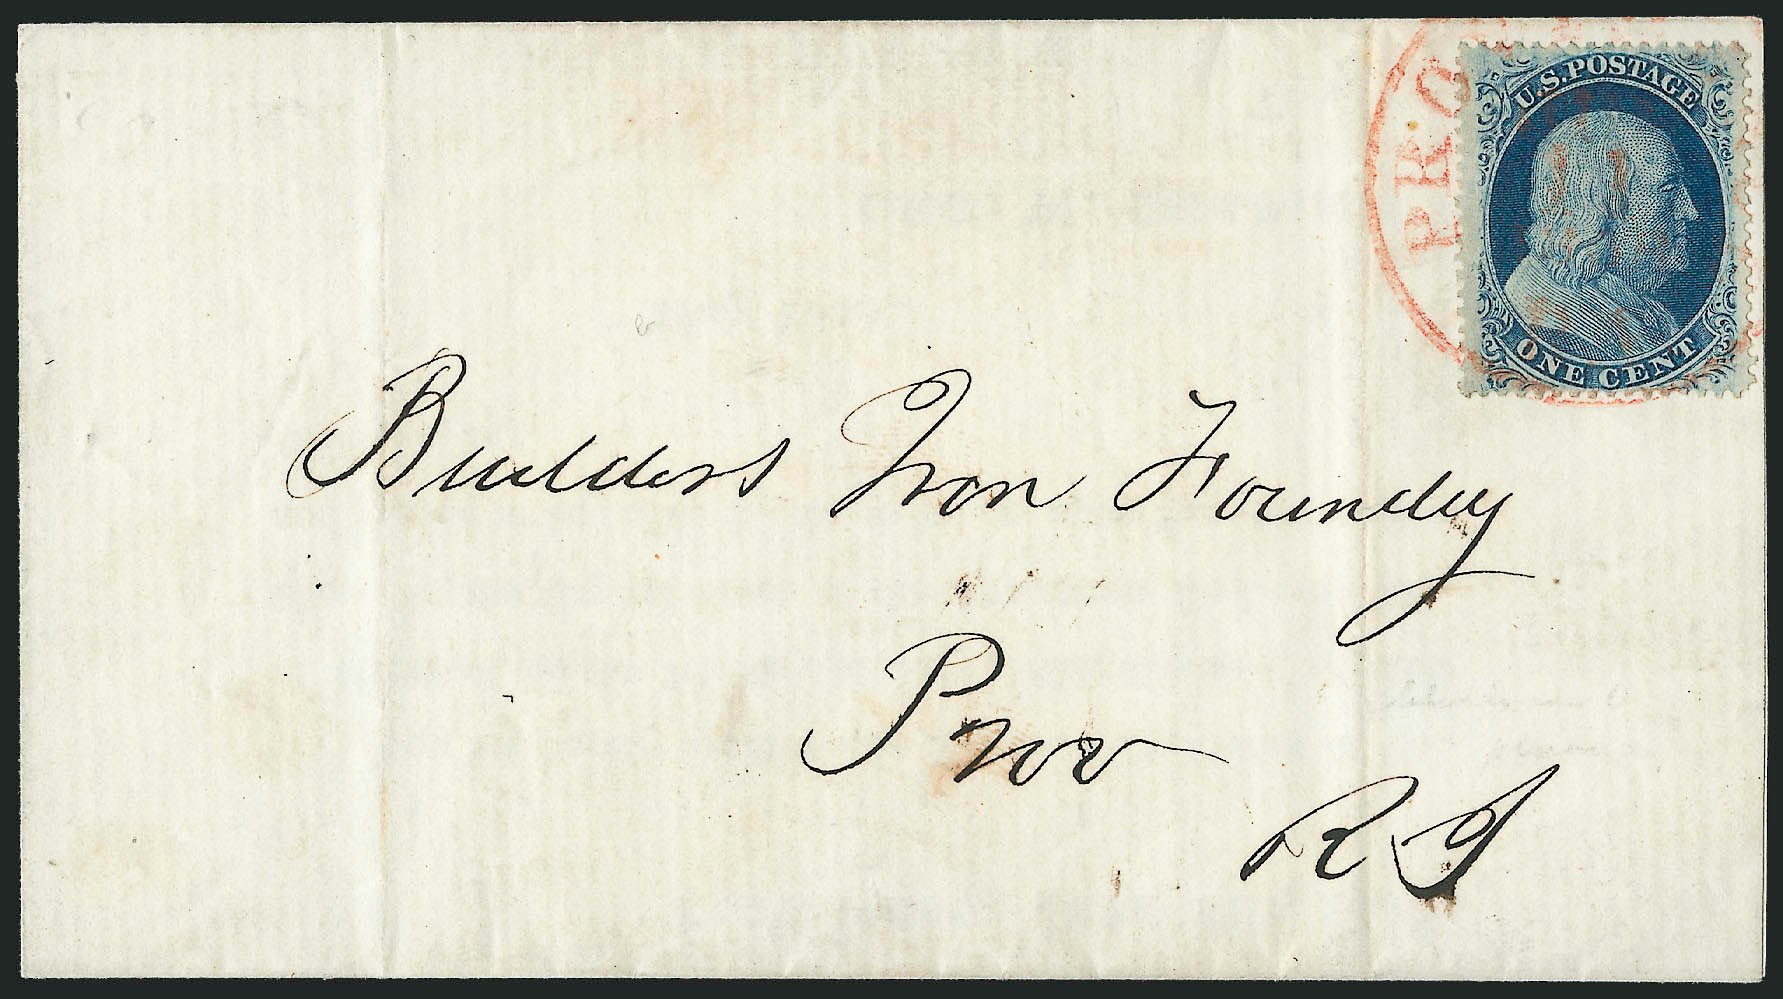 PRO
U.S. POSTAGE
ONE CENT
Builders Iron Foundry
Prov
R I